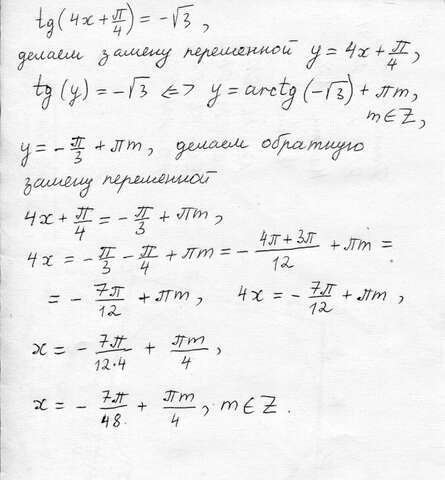 tg(4x + π/4) = -√3,
делаем замену переменной y = 4x + π/4,
tg(y) = -√3 <=> y = arctg(-√3) + πm,
m ∈ Z,
y = -π/3 + πm, делаем обратную
замену переменной
4x + π/4 = -π/3 + πm,
4x = -π/3 - π/4 + πm = -(4π+3π)/12 + πm =
= -7π/12 + πm, 4x = -7π/12 + πm,
x = -7π/(12·4) + πm/4,
x = -7π/48 + πm/4, m ∈ Z.